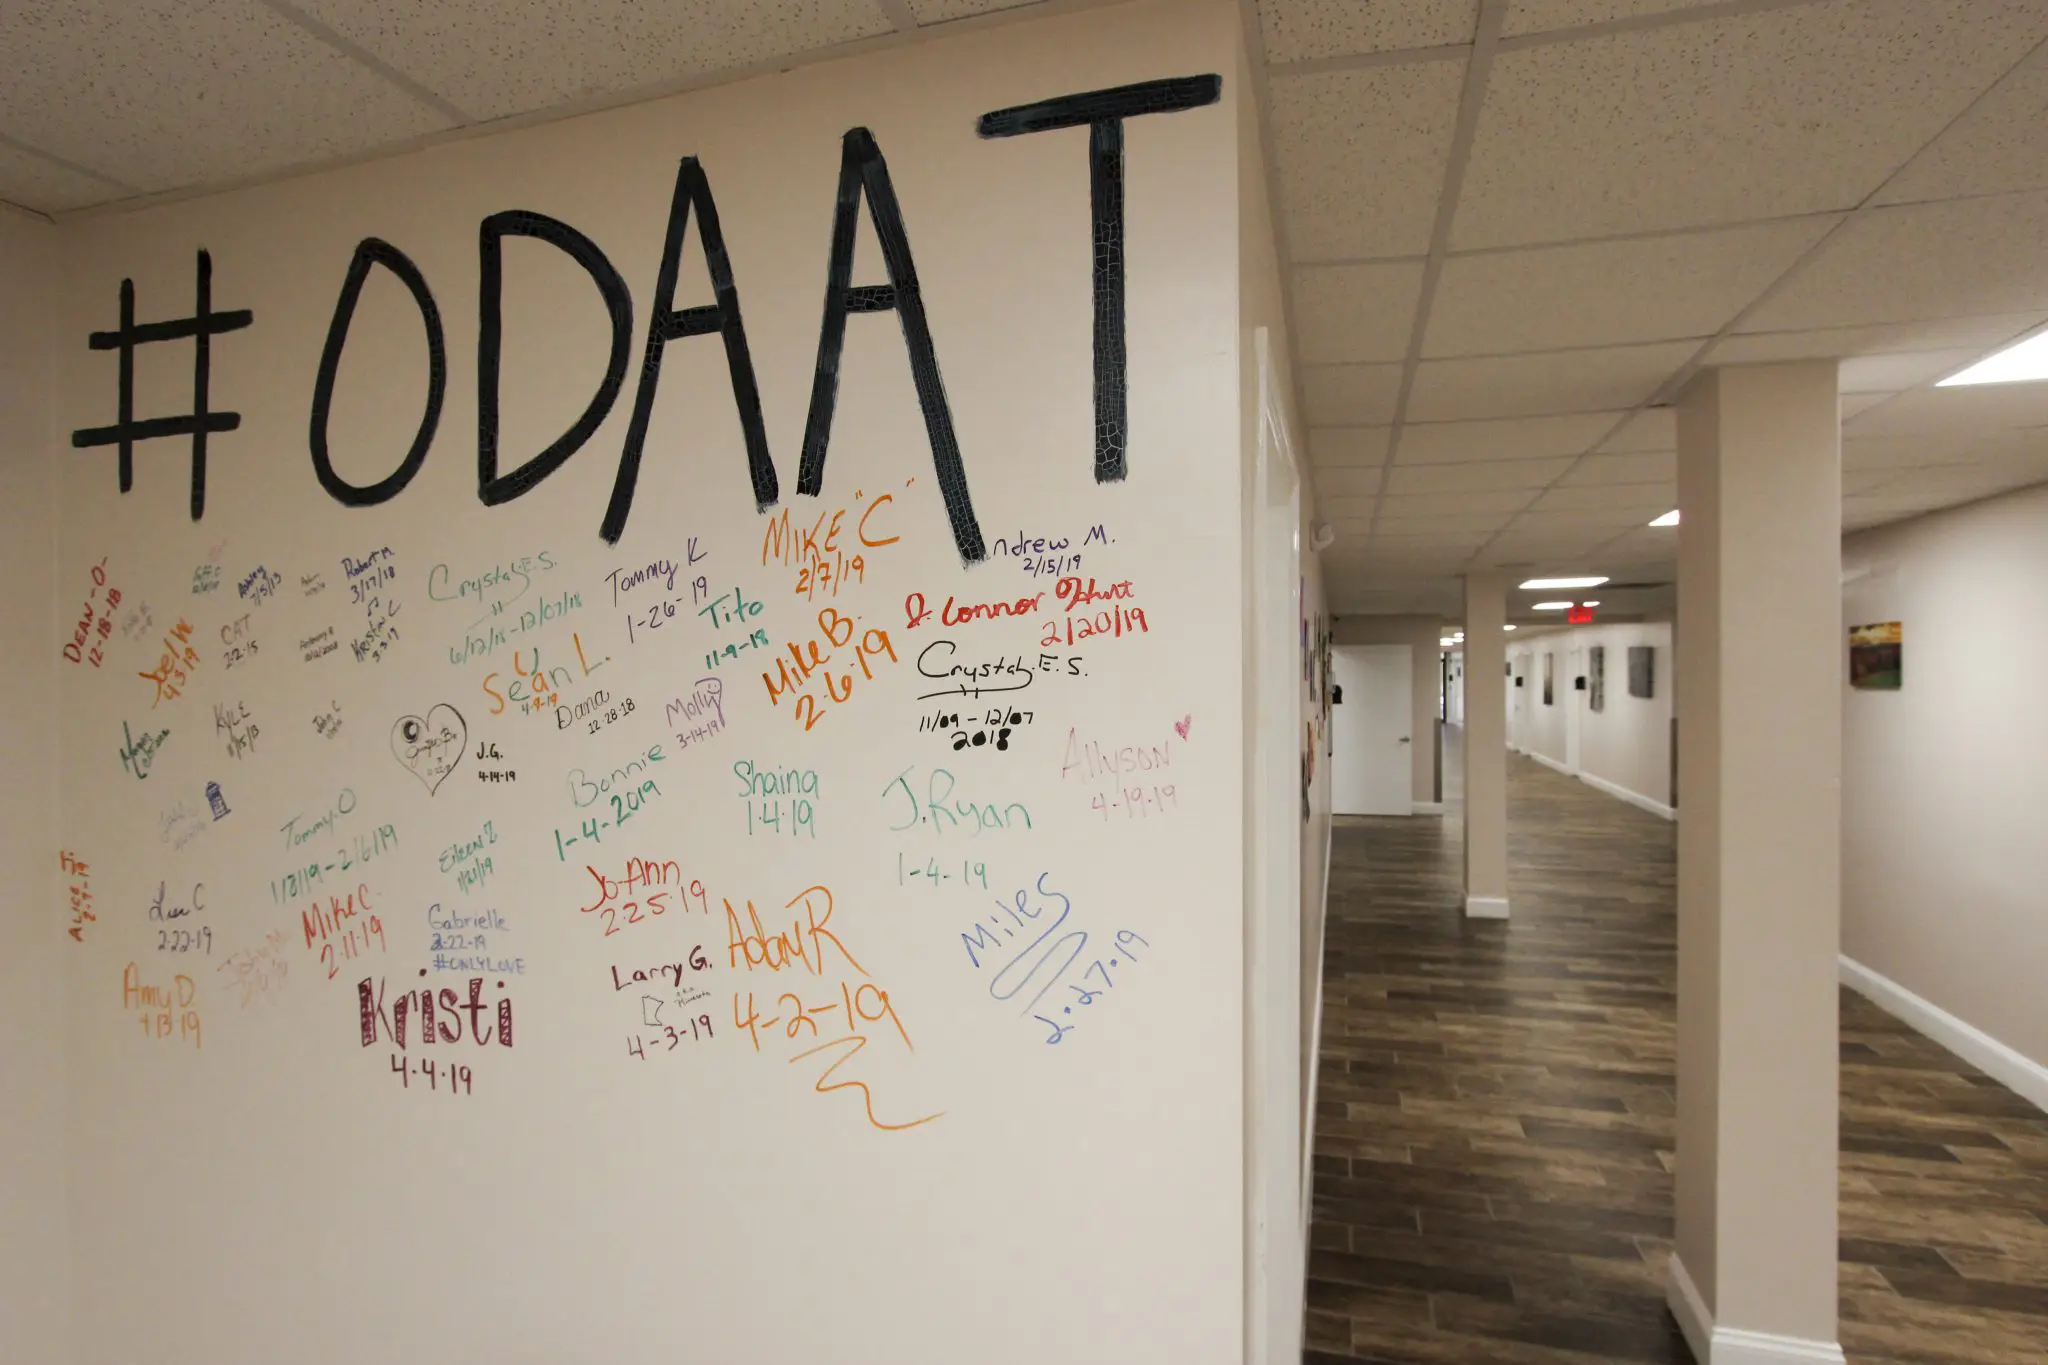 #ODAAT
DEAN-O-
12-18-18
Joel W.
4.3.19
CAT
2.2.15
Ashley
Robert M.
3/17/18
Krista C
3.3.19
Crystal E.S.
6/12/18-12/07/18
Seán L.
4-9-19
Tommy K
1-26-19
Tito
11-9-18
MIKE "C"
2/7/19
Mike B.
2-6-19
Andrew M.
2/15/19
2/20/19
Crystal E.S.
11/09-12/07
2018
KYLE
11/15/13
J.G.
4-14-19
Dana
12-28-18
Molly
3-14-19
Bonnie
1-4-2019
Shaina
1.4.19
J.Ryan
1-4-19
Allyson
4-19-19
Tommy O
1/8/19-2/6/19
Eileen Z
1/21/19
Jo-Ann
2.25.19
2-22-19
Mike C.
2.11.19
Gabrielle
2-22-19
#ONLYLOVE
Amy D.
4-13-19
Kristi
4.4.19
Larry G.
4-3-19
Adam R
4-2-19
Miles
2.27.19